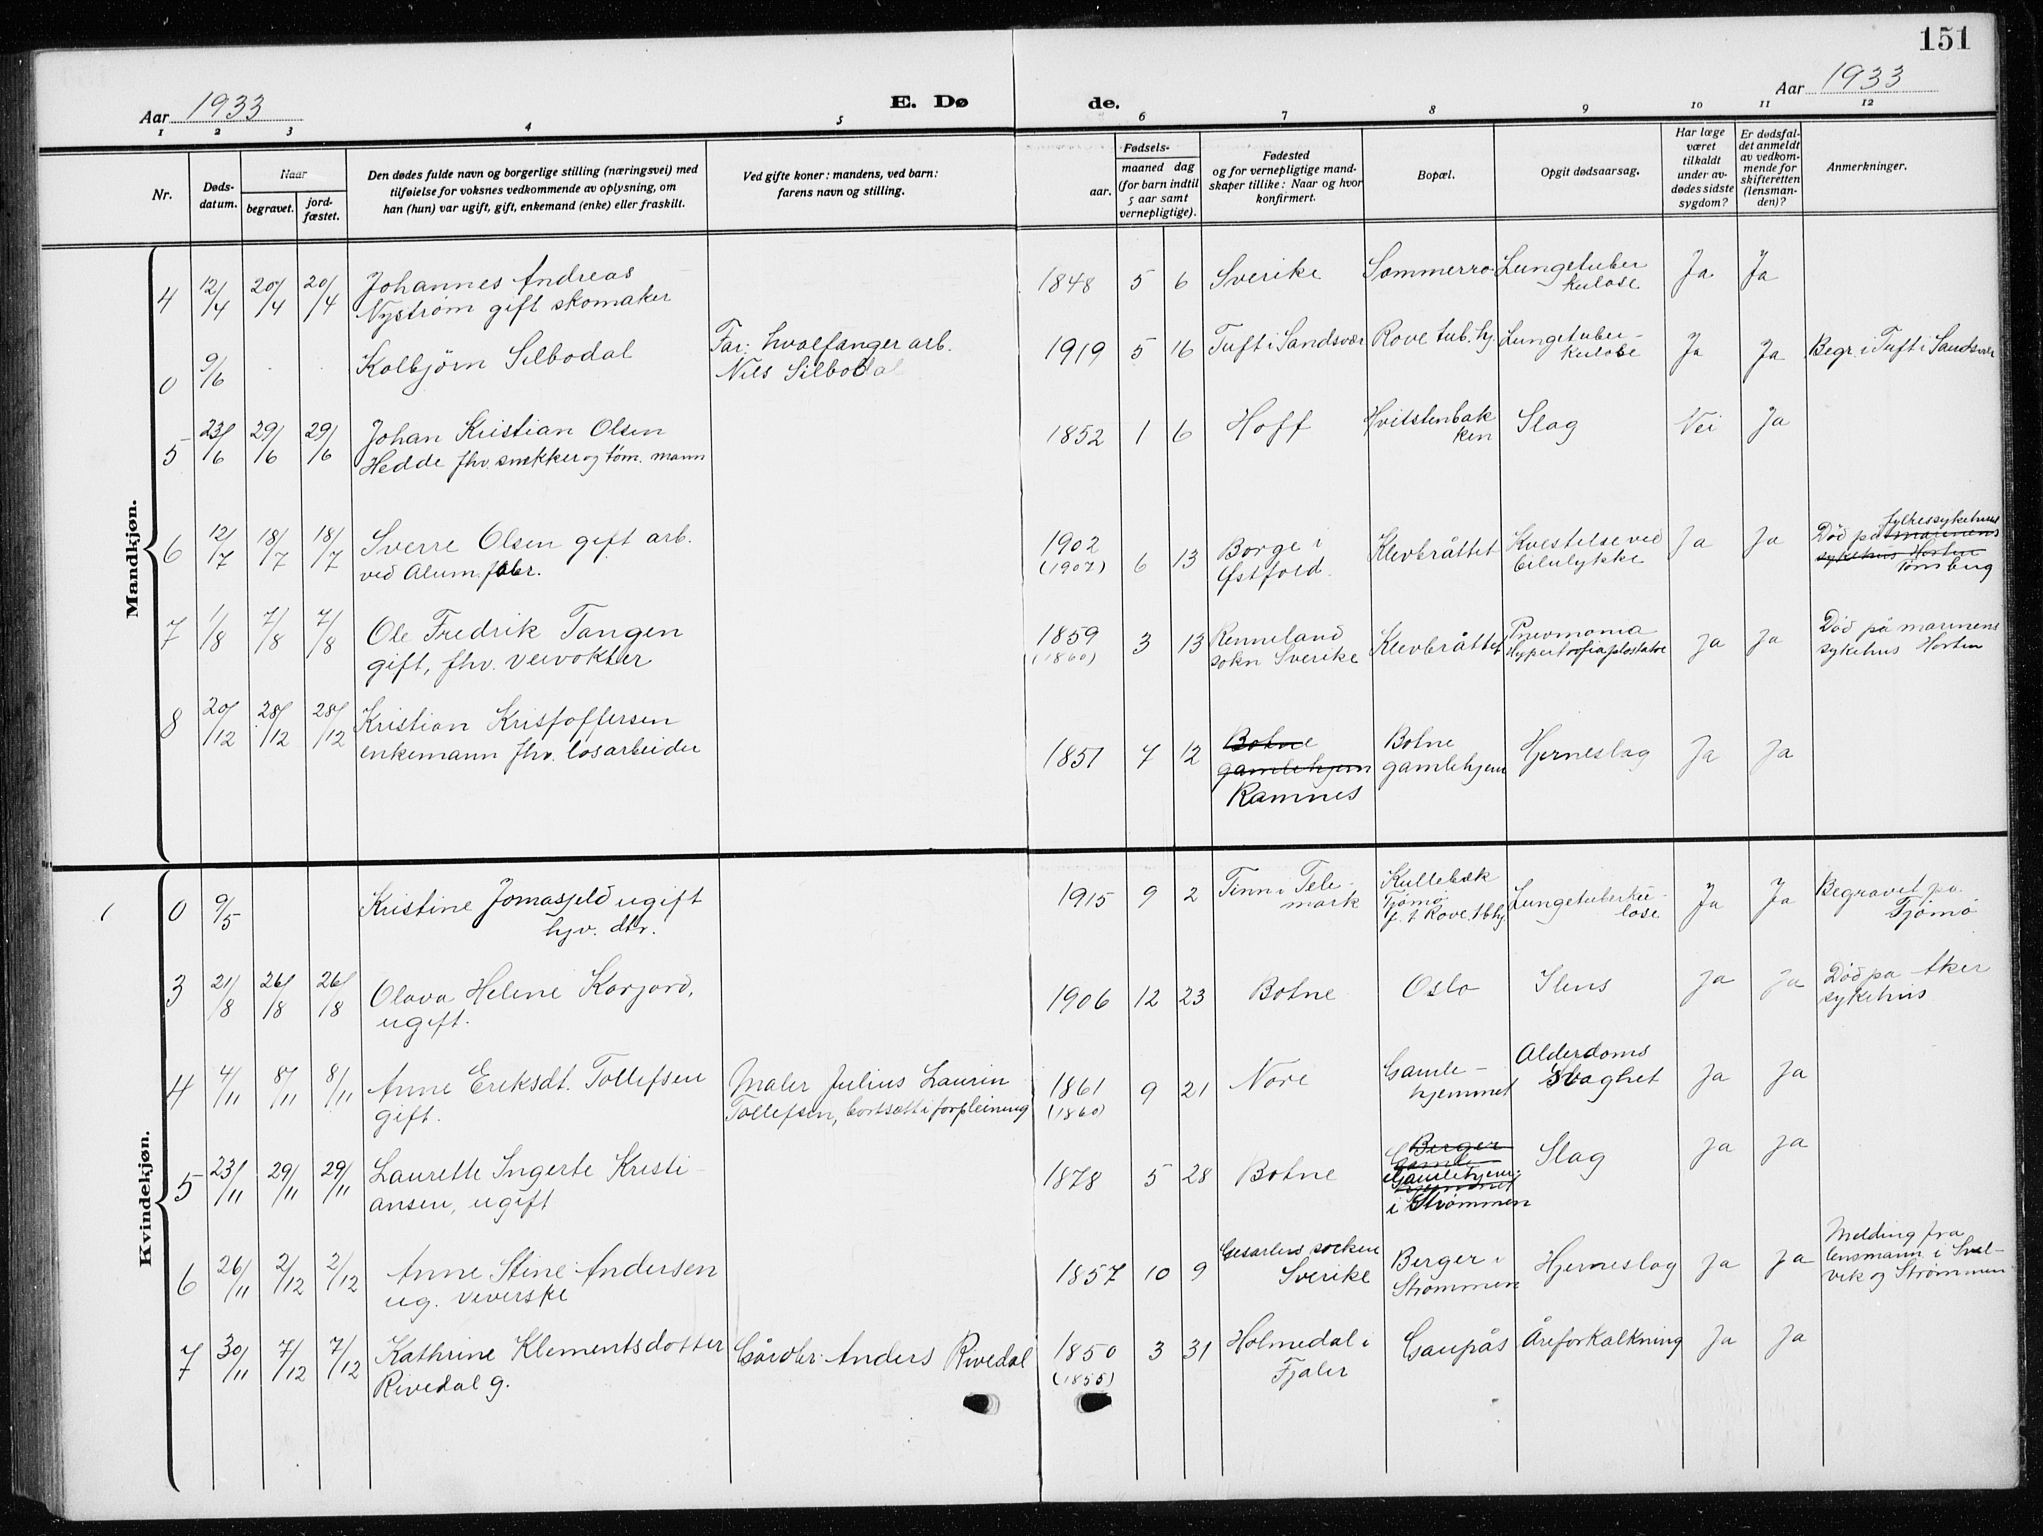 151
Aar 1933
E. Døde.
Aar 1933
1 2 3 4 5 6 7 8 9 10 11 12
Nr.
Døds-
datum.
Naar
begravet.
jord-
fæstet.
Den dødes fulde navn og borgerlige stilling (næringsvei) med
tilføielse for voksnes vedkommende av oplysning, om
han (hun) var ugift, gift, enkemand (enke) eller fraskilt.
Ved gifte koner: mandens, ved barn:
farens navn og stilling.
Fødsels-
aar.
maaned dag
(for barn indtil
5 aar samt
vernepligtige).
Fødested
og for vernepligtige mand-
skaper tillike: Naar og hvor
konfirmert.
Bopæl.
Opgit dødsaarsag.
Har læge
været
tilkaldt
under av-
dødes sidste
sygdom?
Er dødsfal-
det anmeldt
av vedkom-
mende for
skifteretten
(lensman-
den)?
Anmerkninger.
Mandkjøn.
4 12/4 20/4 20/4 Johannes Andreas
Nystrøm gift skomaker
1848 5 6 Sverike Sommerro Lungetuber
kulose Ja Ja
0 9/6 Kolbjørn Silbodal
Far: hvalfanger arb.
Nils Silbodal
1919 5 16 Tuft i Sandsvær Rove tub. hj. Lungetuber-
kulose Ja Ja Begr. i Tuft i Sandsvær
5 23/6 29/6 29/6 Johan Kristian Olsen
Hedde fhv. snekker og tøm. mann
1852 1 6 Hoff Hvitstenbak
ken Slag Nei Ja
6 12/7 18/7 18/7 Sverre Olsen gift arb.
ved Alum. fabr.
1902
(1907) 6 13 Borge i
Østfold. Klevbråttet Kvestelse ved
bilulykke Ja Ja
Død på fylkessykehuset
marinens
sykehus Horten
Tønsberg
7 1/8 7/8 7/8 Ole Fredrik Tangen
gift, fhv. veivokter
1859
(1860) 3 13 Renneland
sokn Sverike Klevbråttet Pnevmonia
Hypertrofia prostatæ Ja Ja Død på marinens
sykehus Horten
8 20/12 28/12 28/12 Kristian Kristoffersen
enkemann fhv. løsarbeider
1851 7 12 Botne
gamlehjem
Ramnes
Botne
gamlehjem Hjerneslag Ja Ja
Kvindekjøn.
1 0 9/5 Kristine Jomasjeld ugift
hjv. dtr.
1915 9 2 Tinn i Tele-
mark Kullebæk
Tjømø
f. t. Rove tbhj. Lungetuberku-
lose Ja Ja Begravet på
Tjømø
3 21/8 26/8 26/8 Olava Helene Korjord,
ugift.
1906 12 23 Botne Oslo Ileus Ja Ja Død på Aker
sykehus
4 4/11 8/11 8/11 Anne Eriksdt. Tollefsen
gift.
Maler Julius Laurin
Tollefsen, bortsatt i forpleining
1861
(1860) 9 21 Nore Gamle-
hjemmet Alderdoms
svaghet Ja Ja
5 23/11 29/11 29/11 Laurette Ingerte Kristi-
ansen, ugift
1878 5 28 Botne Berger
Gamle
Gamlehjem
i Strømmen Slag Ja Ja
6 26/11 2/12 2/12 Anne Stine Andersen
ug. veverske
1857 10 9 socken
Sverike Berger i
Strømmen Hjerneslag Ja Ja Melding fra
lensmann i Svel-
vik og Strømmen
7 30/11 7/12 7/12 Kathrine Klementsdotter
Rivedal g.
Gårdbr. Anders Rivedal
1850
(1855) 3 31 Holmedal i
Fjaler Gaupås Åreforkalkning Ja Ja